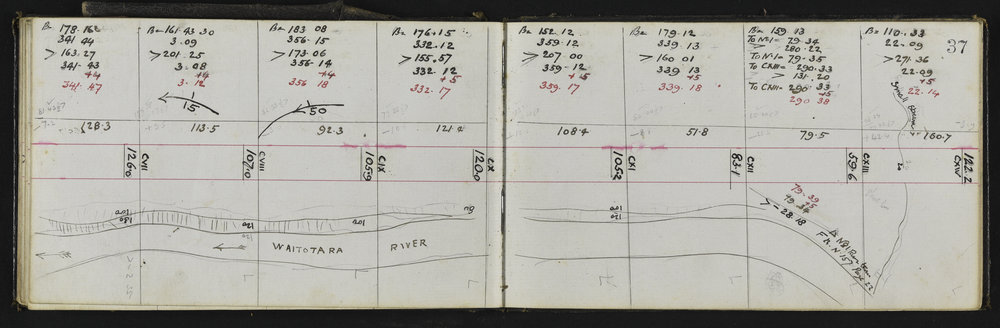 37
B= 178.16
341 44
> 163.27
341.43
+4
341.47
B= 161.43.30
3.09
> 201.25
3.08
+4
3.12
15
B= 183 08
356.15
> 173.06
356.14
+4
356 18
50
B= 176.15
332.12
> 155.57
332.12
+5
332.17
B= 152.12
359.12
> 207 00
359.12
+5
359.17
B= 179.12
339 13
> 160 01
339 13
+5
339.18
B= 159 13
To No1= 79.34
> 280.22
To No1= 79.35
To CXIII= 290.33
> 131.20
To CXIII= 290 33
+5
290 38
B= 110.33
22.09
> 271.36
22.09
+5
22.14
Small
128.3
113.5
92.3
121.4
108.4
51.8
79.5
160.7
1260
CVII
1070
CVIII
1059
CIX
1200
CX
1052
CXI
83.1
CXII
59.6
CXIII
122.2
CXIV
20
100
150
120
102
60
100
120
WAITOTARA RIVER
79.39
+5
79.34
> 28.18
F.B. N 157 Page 22